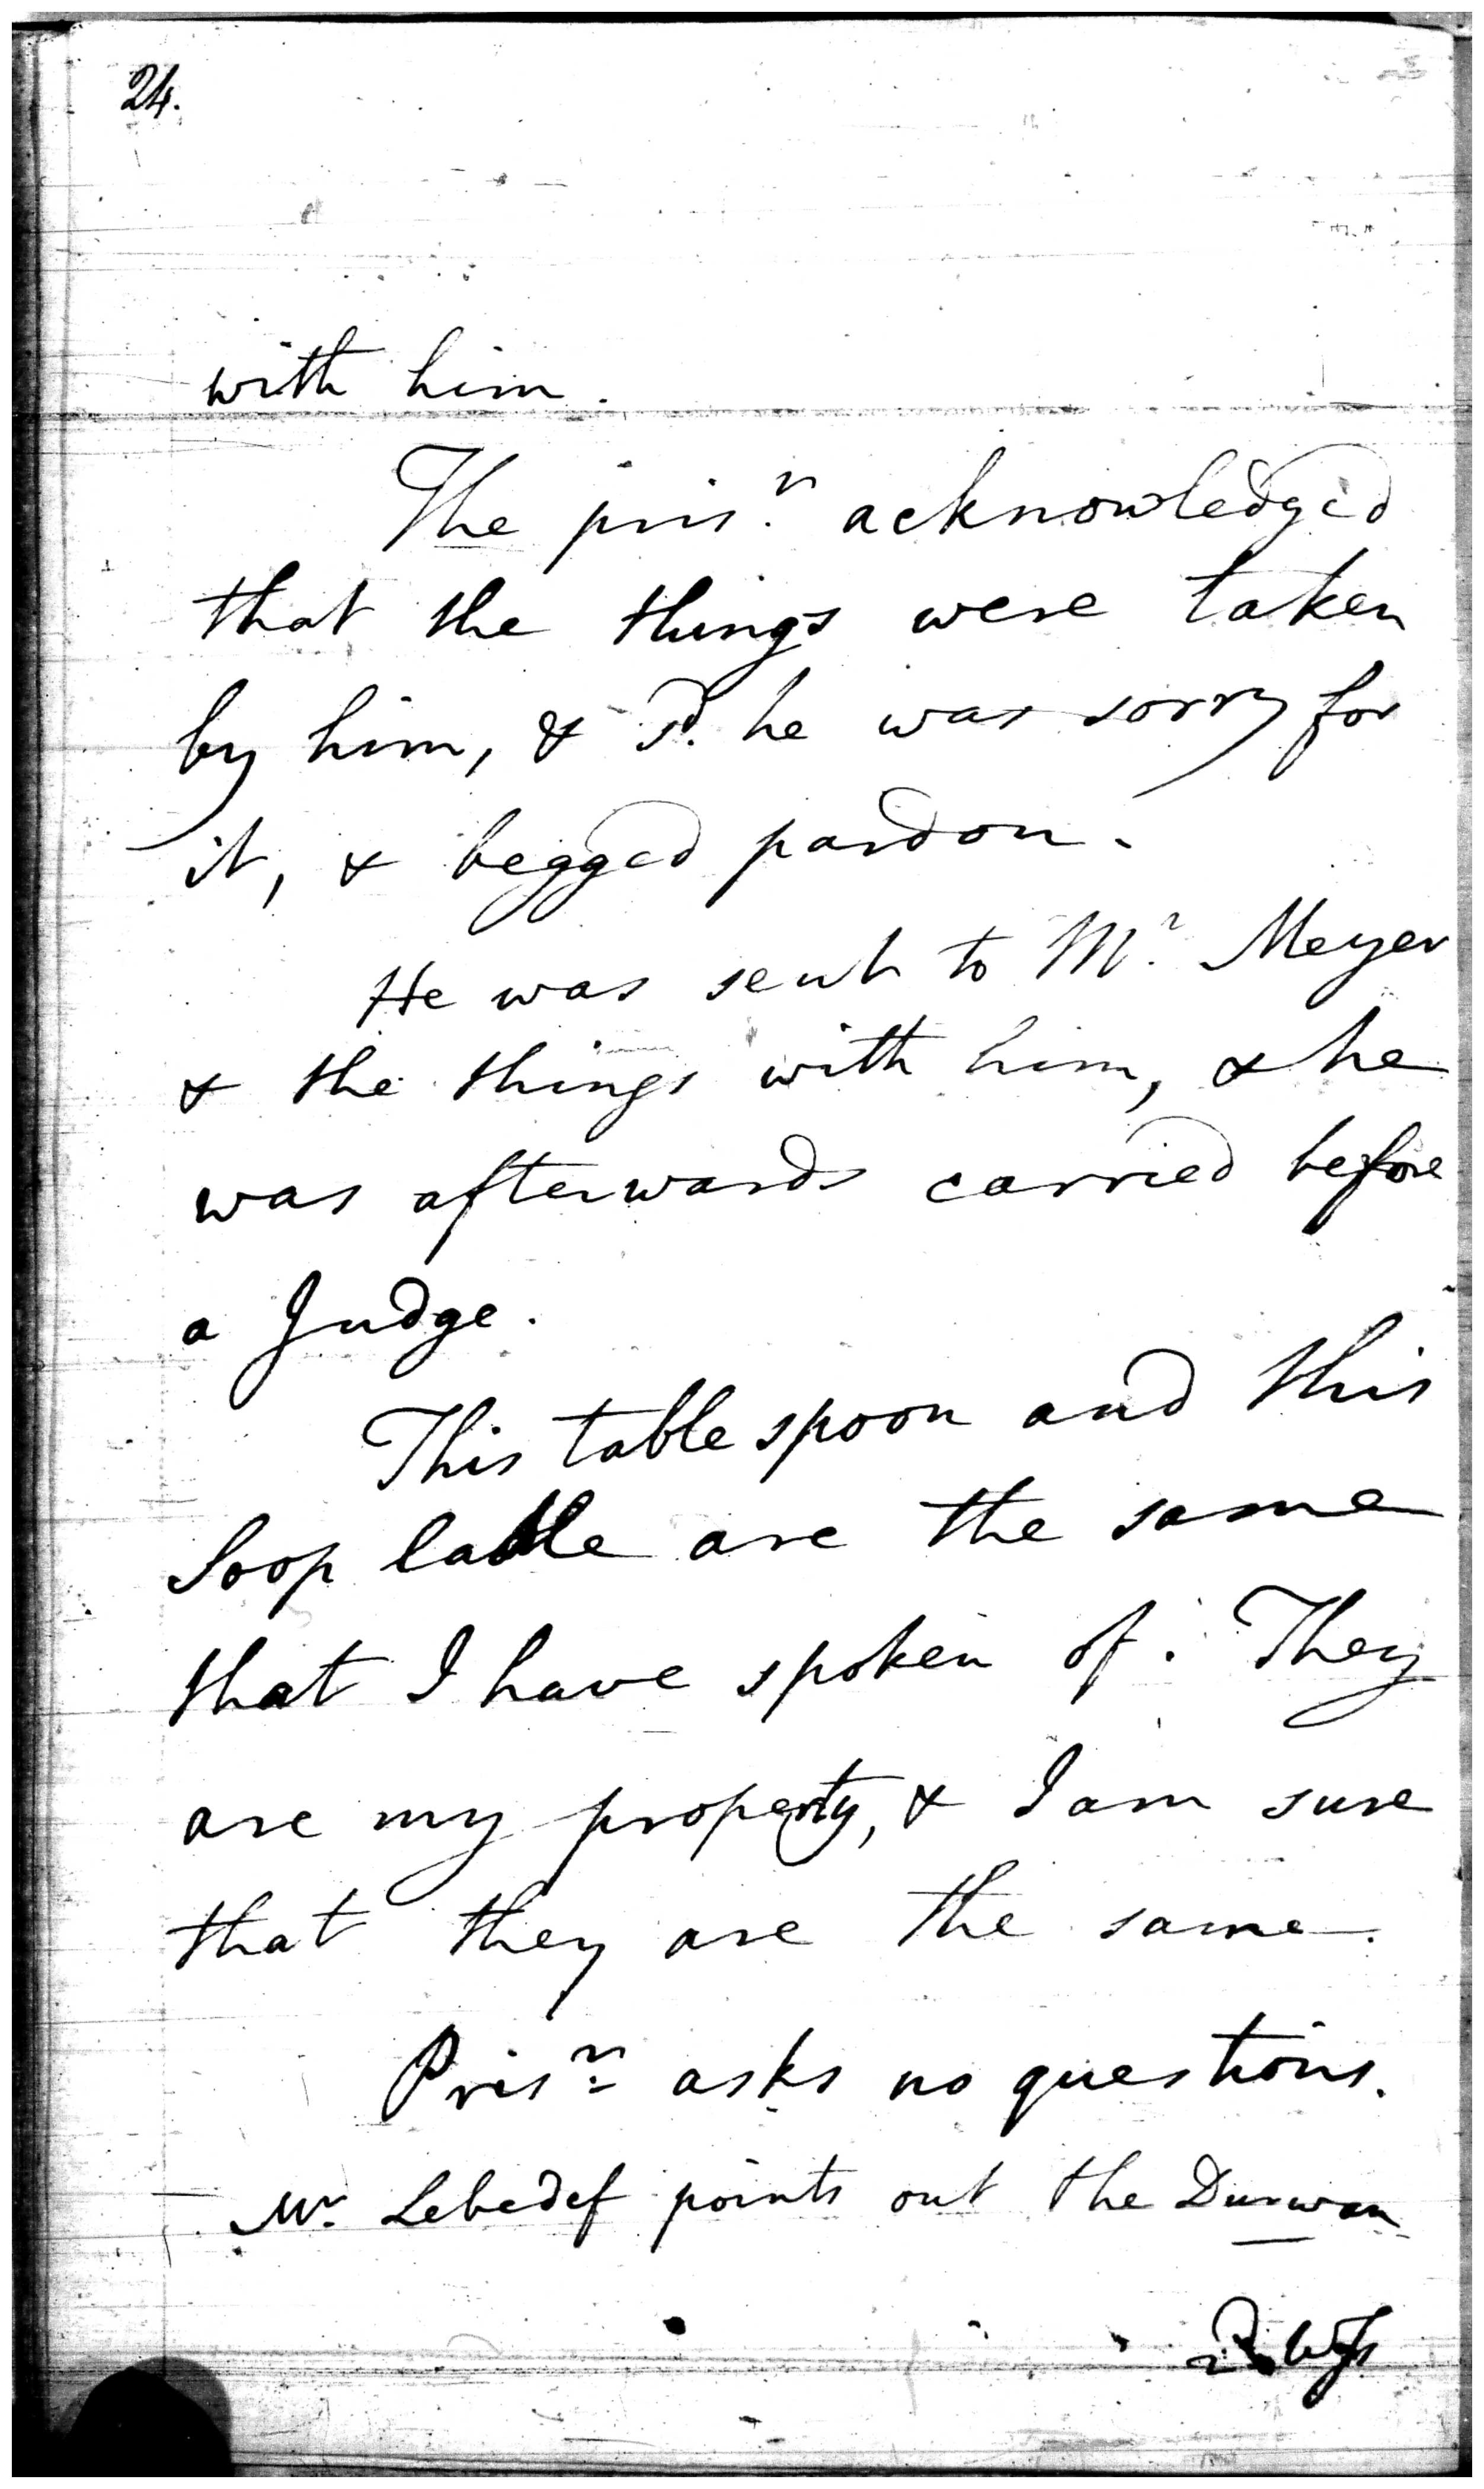 24.
with him.
The pris.ʳ acknowledged
that the things were taken
by him, & sᵈ. he was sorry for
it, & begged pardon.
He was sent to Mʳ. Meyer
& the things with him, & he
was afterwards carried before
a Judge.
This table spoon and this
Soop ladle are the same
that I have spoken of. They
are my property, & I am sure
that they are the same.
Prisʳ. asks no questions.
Mʳ. Lebedef points out the Durwan